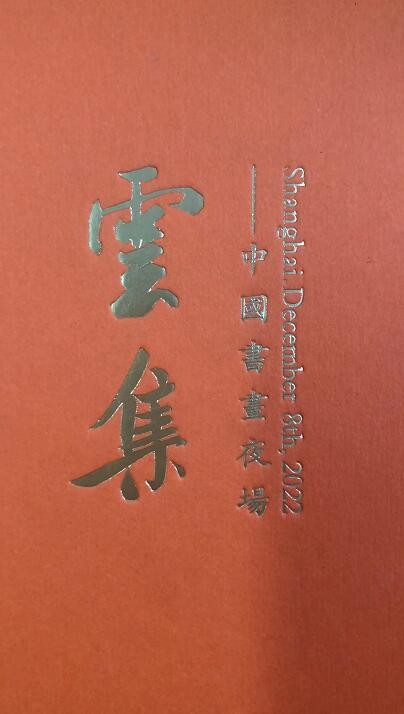 雲集
——中國書畫夜場
Shanghai.December 8th, 2022